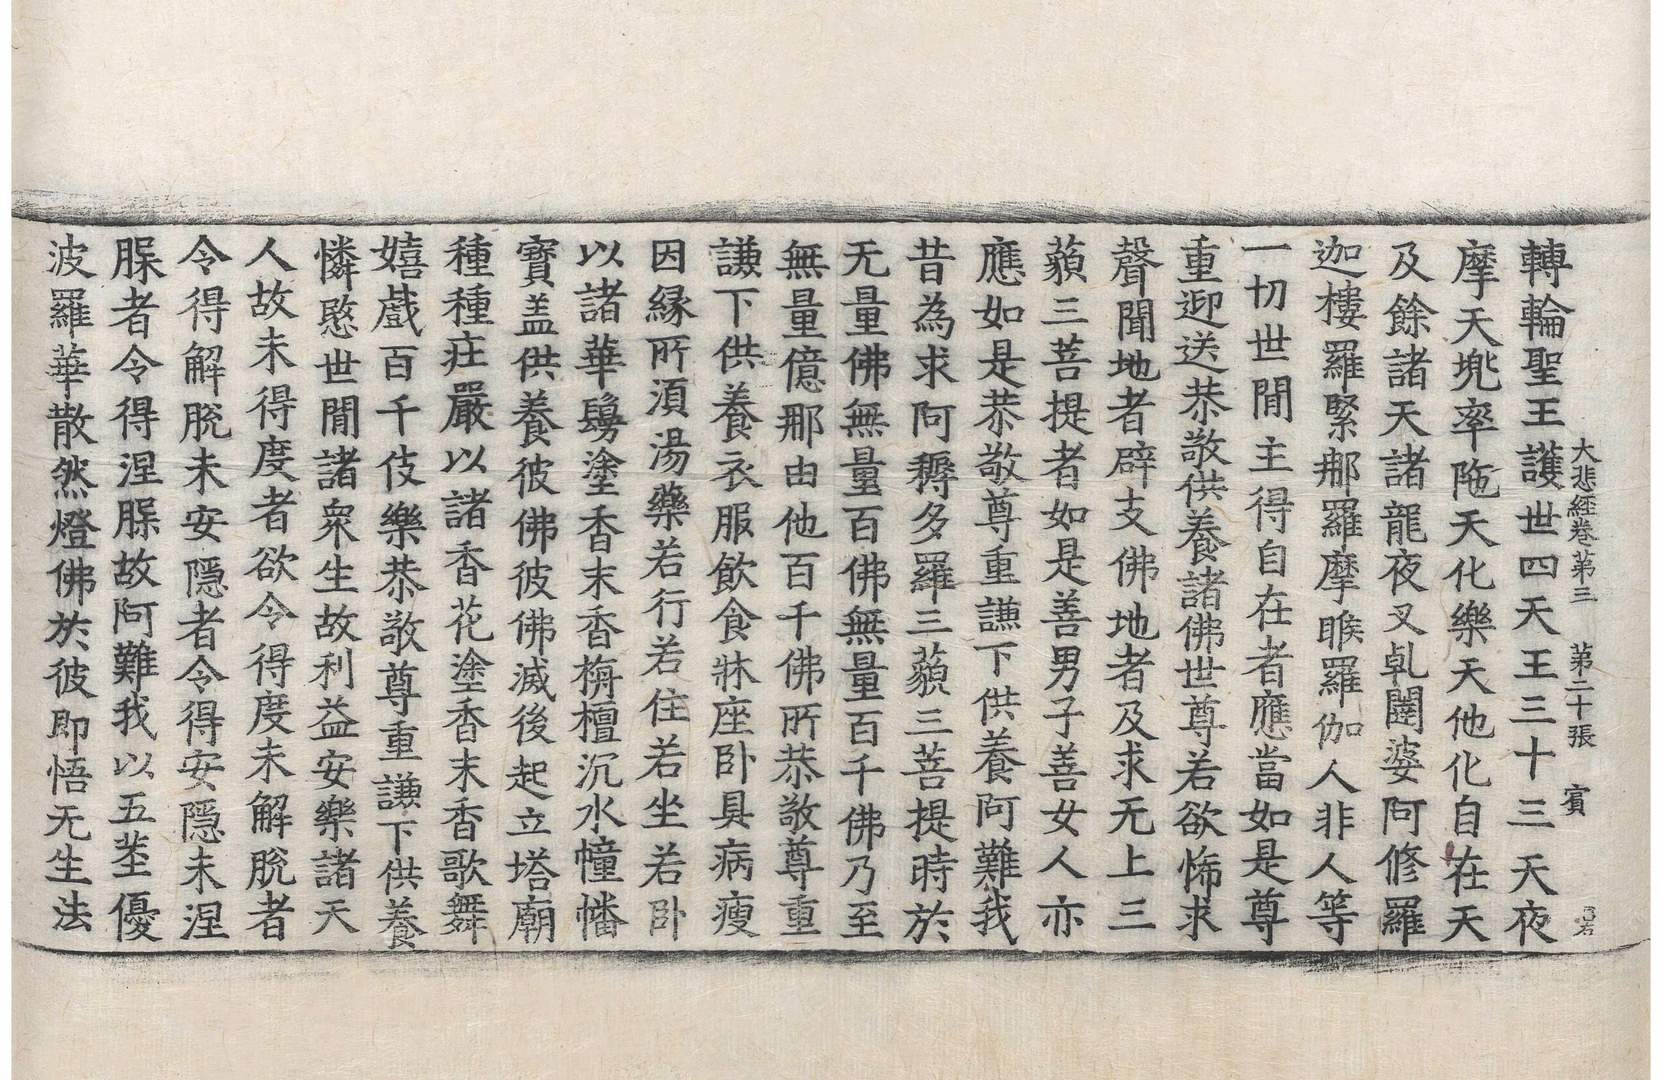 大悲經卷第三 第二十張 賓
轉輪聖王護世四天王三十三天夜
摩天兠率陁天化樂天他化自在天
及餘諸天諸龍夜叉乹闥婆阿修羅
迦樓羅緊那羅摩睺羅伽人非人等
一切世閒主得自在者應當如是尊
重迎送恭敬供養諸佛世尊若欲悕求
聲聞地者辟支佛地者及求无上三
藐三菩提者如是善男子善女人亦
應如是恭敬尊重謙下供養阿難我
昔為求阿耨多羅三藐三菩提時於
无量佛無量百佛無量百千佛乃至
無量億那由他百千佛所恭敬尊重
謙下供養衣服飲食牀座卧具病瘦
因縁所須湯藥若行若住若坐若卧
以諸華鬘塗香末香栴檀沉水幢幡
寶盖供養彼佛彼佛滅後起立塔廟
種種庄嚴以諸香花塗香末香歌舞
嬉戲百千伎樂恭敬尊重謙下供養
憐愍世閒諸衆生故利益安樂諸天
人故未得度者欲令得度未解脫者
令得解脫未安隱者令得安隱未涅
𦙁者令得涅𦙁故阿難我以五莖優
波羅華散然燈佛於彼即悟无生法